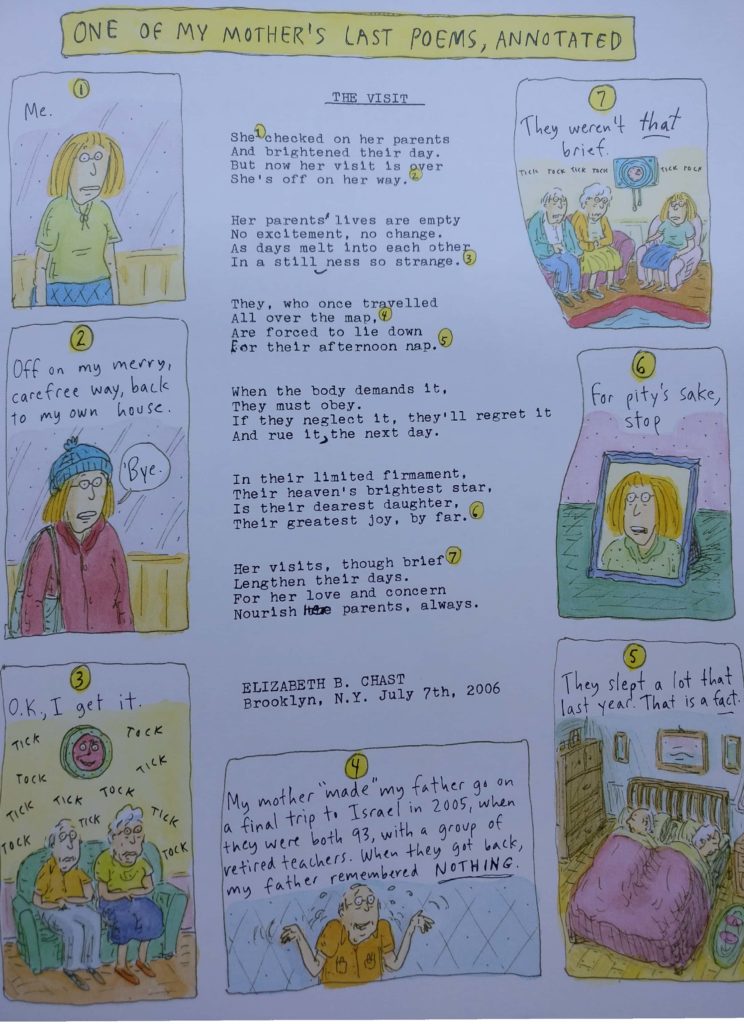 ONE OF MY MOTHER'S LAST POEMS, ANNOTATED
THE VISIT
She 1 checked on her parents
And brightened their day.
But now her visit is over
She's off on her way. 2
Her parents' lives are empty
No excitement, no change.
As days melt into each other
In a still ness so strange. 3
They, who once travelled
All over the map, 4
Are forced to lie down
For their afternoon nap. 5
When the body demands it,
They must obey.
If they neglect it, they'll regret it
And rue it, the next day.
In their limited firmament,
Their heaven's brightest star,
Is their dearest daughter,
Their greatest joy, by far. 6
Her visits, though brief 7
Lengthen their days.
For her love and concern
Nourish her parents, always.
ELIZABETH B. CHAST
Brooklyn, N.Y. July 7th, 2006
1
Me.
2
Off on my merry,
carefree way, back
to my own house.
'Bye.
3
O.K., I get it.
TICK TOCK
TOCK TICK
TICK TICK TOCK
TICK TICK
TOCK TOCK
4
My mother "made" my father go on
a final trip to Israel in 2005, when
they were both 93, with a group of
retired teachers. When they got back,
my father remembered NOTHING.
5
They slept a lot that
last year. That is a fact.
6
For pity's sake,
stop
7
They weren't that
brief.
TICK TOCK TICK TOCK TICK TOCK